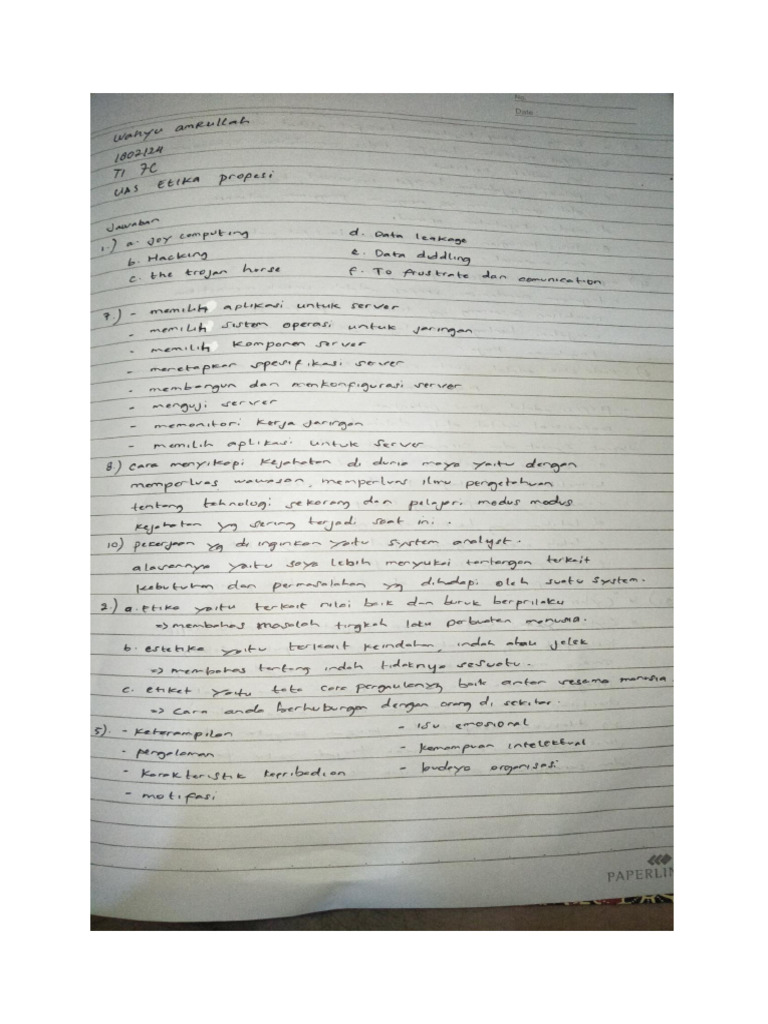 No.
Date
Wahyu amrullah
1802124
TI 7C
UAS Etika propesi
Jawaban
1.) a. Joy computing
b. Hacking
c. the trojan horse
d. Data leakage
e. Data diddling
f. To frustrate dan comunication.
7.) - memilih aplikasi untuk server
- memilih sistem operasi untuk jaringan
- memilih komponen server
- menetapkan spesifikasi server
- membangun dan menkonfigurasi server
- menguji server
- memonitori kerja jaringan
- memilih aplikasi untuk server
8.) cara menyikapi kejahatan di dunia maya yaitu dengan
memperluas wawasan, memperluas ilmu pengetahuan
tentang tehnologi sekarang dan pelajari modus modus
kejahatan yg sering terjadi saat ini..
10) pekerjaan yg di inginkan yaitu system analyst.
alasannya yaitu saya lebih menyukai tantangan terkait
kebutuhan dan permasalahan yg dihadapi oleh suatu system.
2.) a. Etika yaitu terkait nilai baik dan buruk berprilaku
=> membahas masalah tingkah laku perbuatan manusia.
b. estetika yaitu terkait keindahan, indah atau jelek
=> membahas tentang indah tidaknya sesuatu.
c. etiket yaitu tata cara pergaulan yg baik antar sesama manusia
=> cara anda berhubungan dengan orang di sekitar.
5). - keterampilan
- pengalaman
- karakteristik kepribadian
- motifasi
- isu emosional
- kemampuan intelektual
- budaya organisasi
PAPERLIN